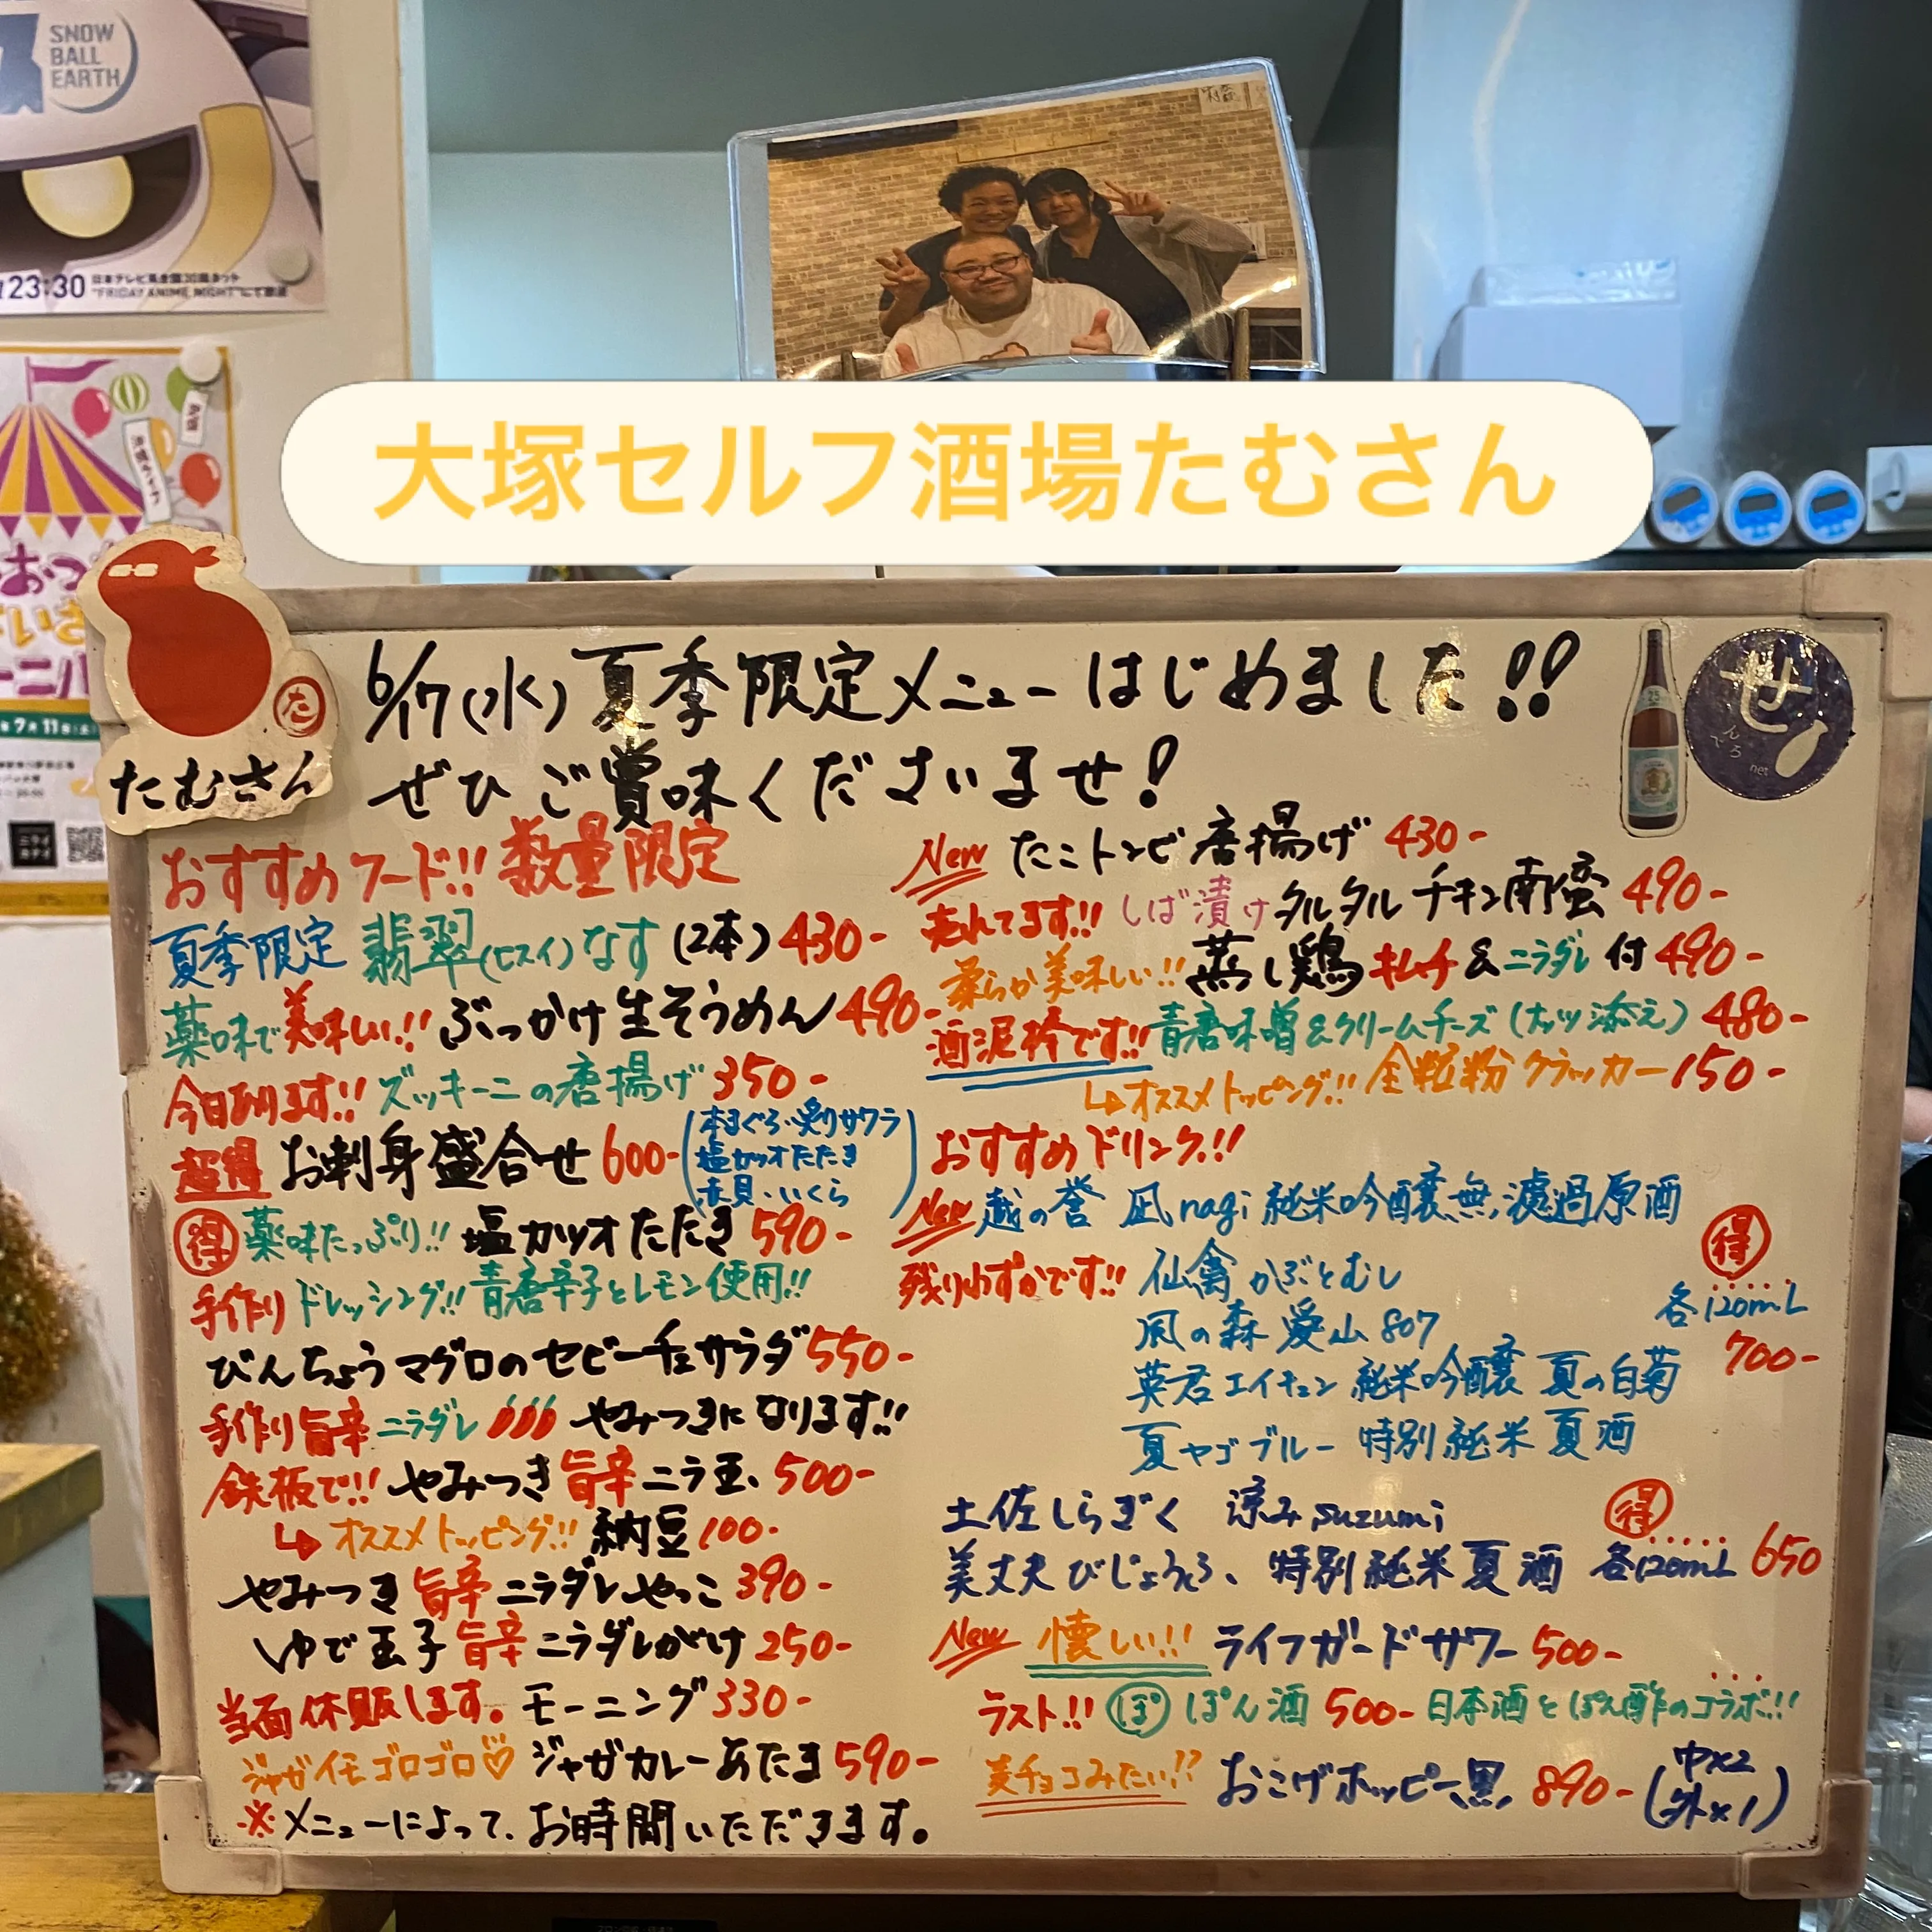 SNOW
BALL
EARTH
23:30
"FRIDAY ANIME NIGHT"にて放送
大塚セルフ酒場たむさん
たむさん
た
せ
んべろ
net
6/17(水)夏季限定メニューはじめました!!
ぜひご賞味くださいませ!
おすすめフード!! 数量限定
夏季限定 翡翠(ヒスイ)なす(2本) 430-
薬味で美味しい!! ぶっかけ生そうめん 490-
今日あります!! ズッキーニの唐揚げ 350-
超得 お刺身盛合せ 600-
(本まぐろ・炙りサワラ
塩カツオたたき
赤貝・いくら)
得 薬味たっぷり!! 塩カツオたたき 590-
手作りドレッシング!! 青唐辛子とレモン使用!!
びんちょうマグロのセビーチェサラダ 550-
手作り旨辛ニラダレ やみつきになります!!
鉄板で!! やみつき旨辛ニラ玉、500-
↳オススメトッピング!! 納豆 100-
やみつき旨辛ニラダレやっこ 390-
ゆで玉子旨辛ニラダレがけ 250-
当面休販します。モーニング 330-
ジャガイモゴロゴロ♡ ジャガカレーあたま 590-
※メニューによって、お時間いただきます。
New たこトンビ唐揚げ 430-
売れてます!! しば漬けタルタルチキン南蛮 490-
柔らか美味しい!! 蒸し鶏キムチ&ニラダレ付 490-
酒泥棒です!! 青唐味噌&クリームチーズ(ナッツ添え) 480-
↳オススメトッピング!! 全粒粉クラッカー 150-
おすすめドリンク!!
New 越の誉 凪 nagi 純米吟醸無濾過原酒
残りわずかです!! 仙禽 かぶとむし
風の森 愛山 807
英君エイクン 純米吟醸 夏の白菊
夏ヤゴブルー 特別純米 夏酒
得
各120mL
700-
土佐しらぎく 涼み suzumi
美丈夫 びじょうふ、特別純米 夏酒
得
各120mL 650
New 懐しい!! ライフガードサワー 500-
ラスト!! ぽ ぽん酒 500- 日本酒とぽん酢のコラボ!!
麦チョコみたい!? おこげホッピー黒 890- (中×2
外×1)